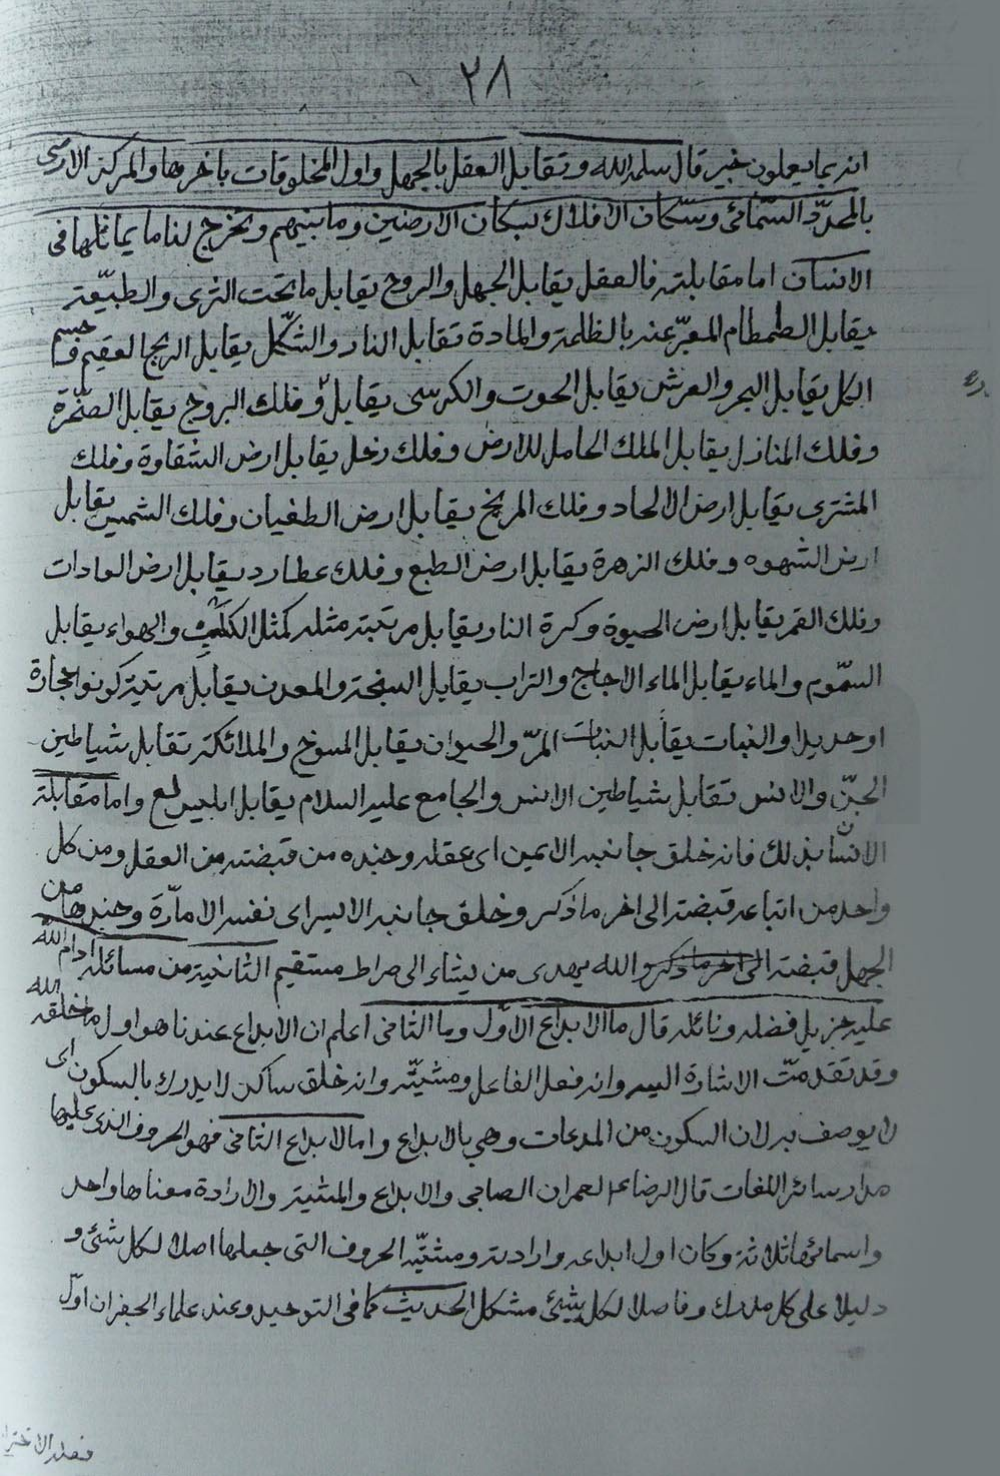 ٢٨
انه بما يعملون خبير قال سلمه الله وتقابل العقل بالجهل واول المخلوقات باخرها والمركز الارضى
بالمحدّد السّمائى وسكان الافلاك لسكان الارضين وما بينهم ويخرج لنا ما يماثلها فى
الانسان اما مقابلته فالعقل يقابل الجهل والروح يقابل ما تحت الثرى والطبيعة
يقابل الطمطام المعبّر عنه بالظلمة والمادة تقابل النار والشكل يقابل الريح العقيم وجسم
الكل يقابل البحر والعرش يقابل الحوت والكرسى يقابل وفلك البروج يقابل الصّخرة
وفلك المنازل يقابل الملك الحامل للارض وفلك زحل يقابل ارض الشقاوة وفلك
المشترى يقابل ارض الالحاد وفلك المريخ يقابل ارض الطغيان وفلك الشمس يقابل
ارض الشهوه وفلك الزهرة يقابل ارض الطبع وفلك عطارد يقابل ارض العادات
وفلك القمر يقابل ارض الحيوة وكرة النار يقابل مرتبة مثله كمثل الكلب والهواء يقابل
السّموم والماء يقابل الماء الاجاج والتراب يقابل السبخة والمعدن يقابل مرتبة كونوا حجارة
او حديدا والنبات يقابل النبات المرّ والحيوان يقابل المسوخ والملائكة تقابل شياطين
الجنّ والانس تقابل شياطين الانس والجامع عليه السلام يقابل ابليس لع واما مقابلة
الانسان بذلك فانه خلق جانبه الايمن اى عقله وجنده من قبضته من العقل ومن كل
واحد من اتباعه قبضة الى اخر ما ذكر وخلق جانبه الايسر اى نفسه الامّارة وجندها من
الجهل قبضة الى اخر ما ذكر والله يهدى من يشاء الى صراط مستقيم الثانية من مسائله ادام الله
عليه جزيل فضله ونائله قال ما الابداع الاوّل وما الثانى اعلم ان الابداع عندنا هو اول ما خلقه الله
وقد تقدمت الاشارة اليه وانه فعل الفاعل ومشيّته وانه خلق ساكن لا يدرك بالسكون اى
لا يوصف به لان السكون من المبدعات وهى بالابداع واما الابداع الثانى فهو الحروف الذى عليها
مدار سائر اللغات قال الرضا ع لعمران الصابى والابداع والمشية والارادة معناها واحد
واسمائها ثلاثة وكان اول ابداعه وارادته ومشيّته الحروف التى جعلها اصلا لكل شئ و
دليلا على كل مدرك وفاصلا لكل شئ مشكل الحديث كما فى التوحيد وعند علماء الجفر ان اوّل